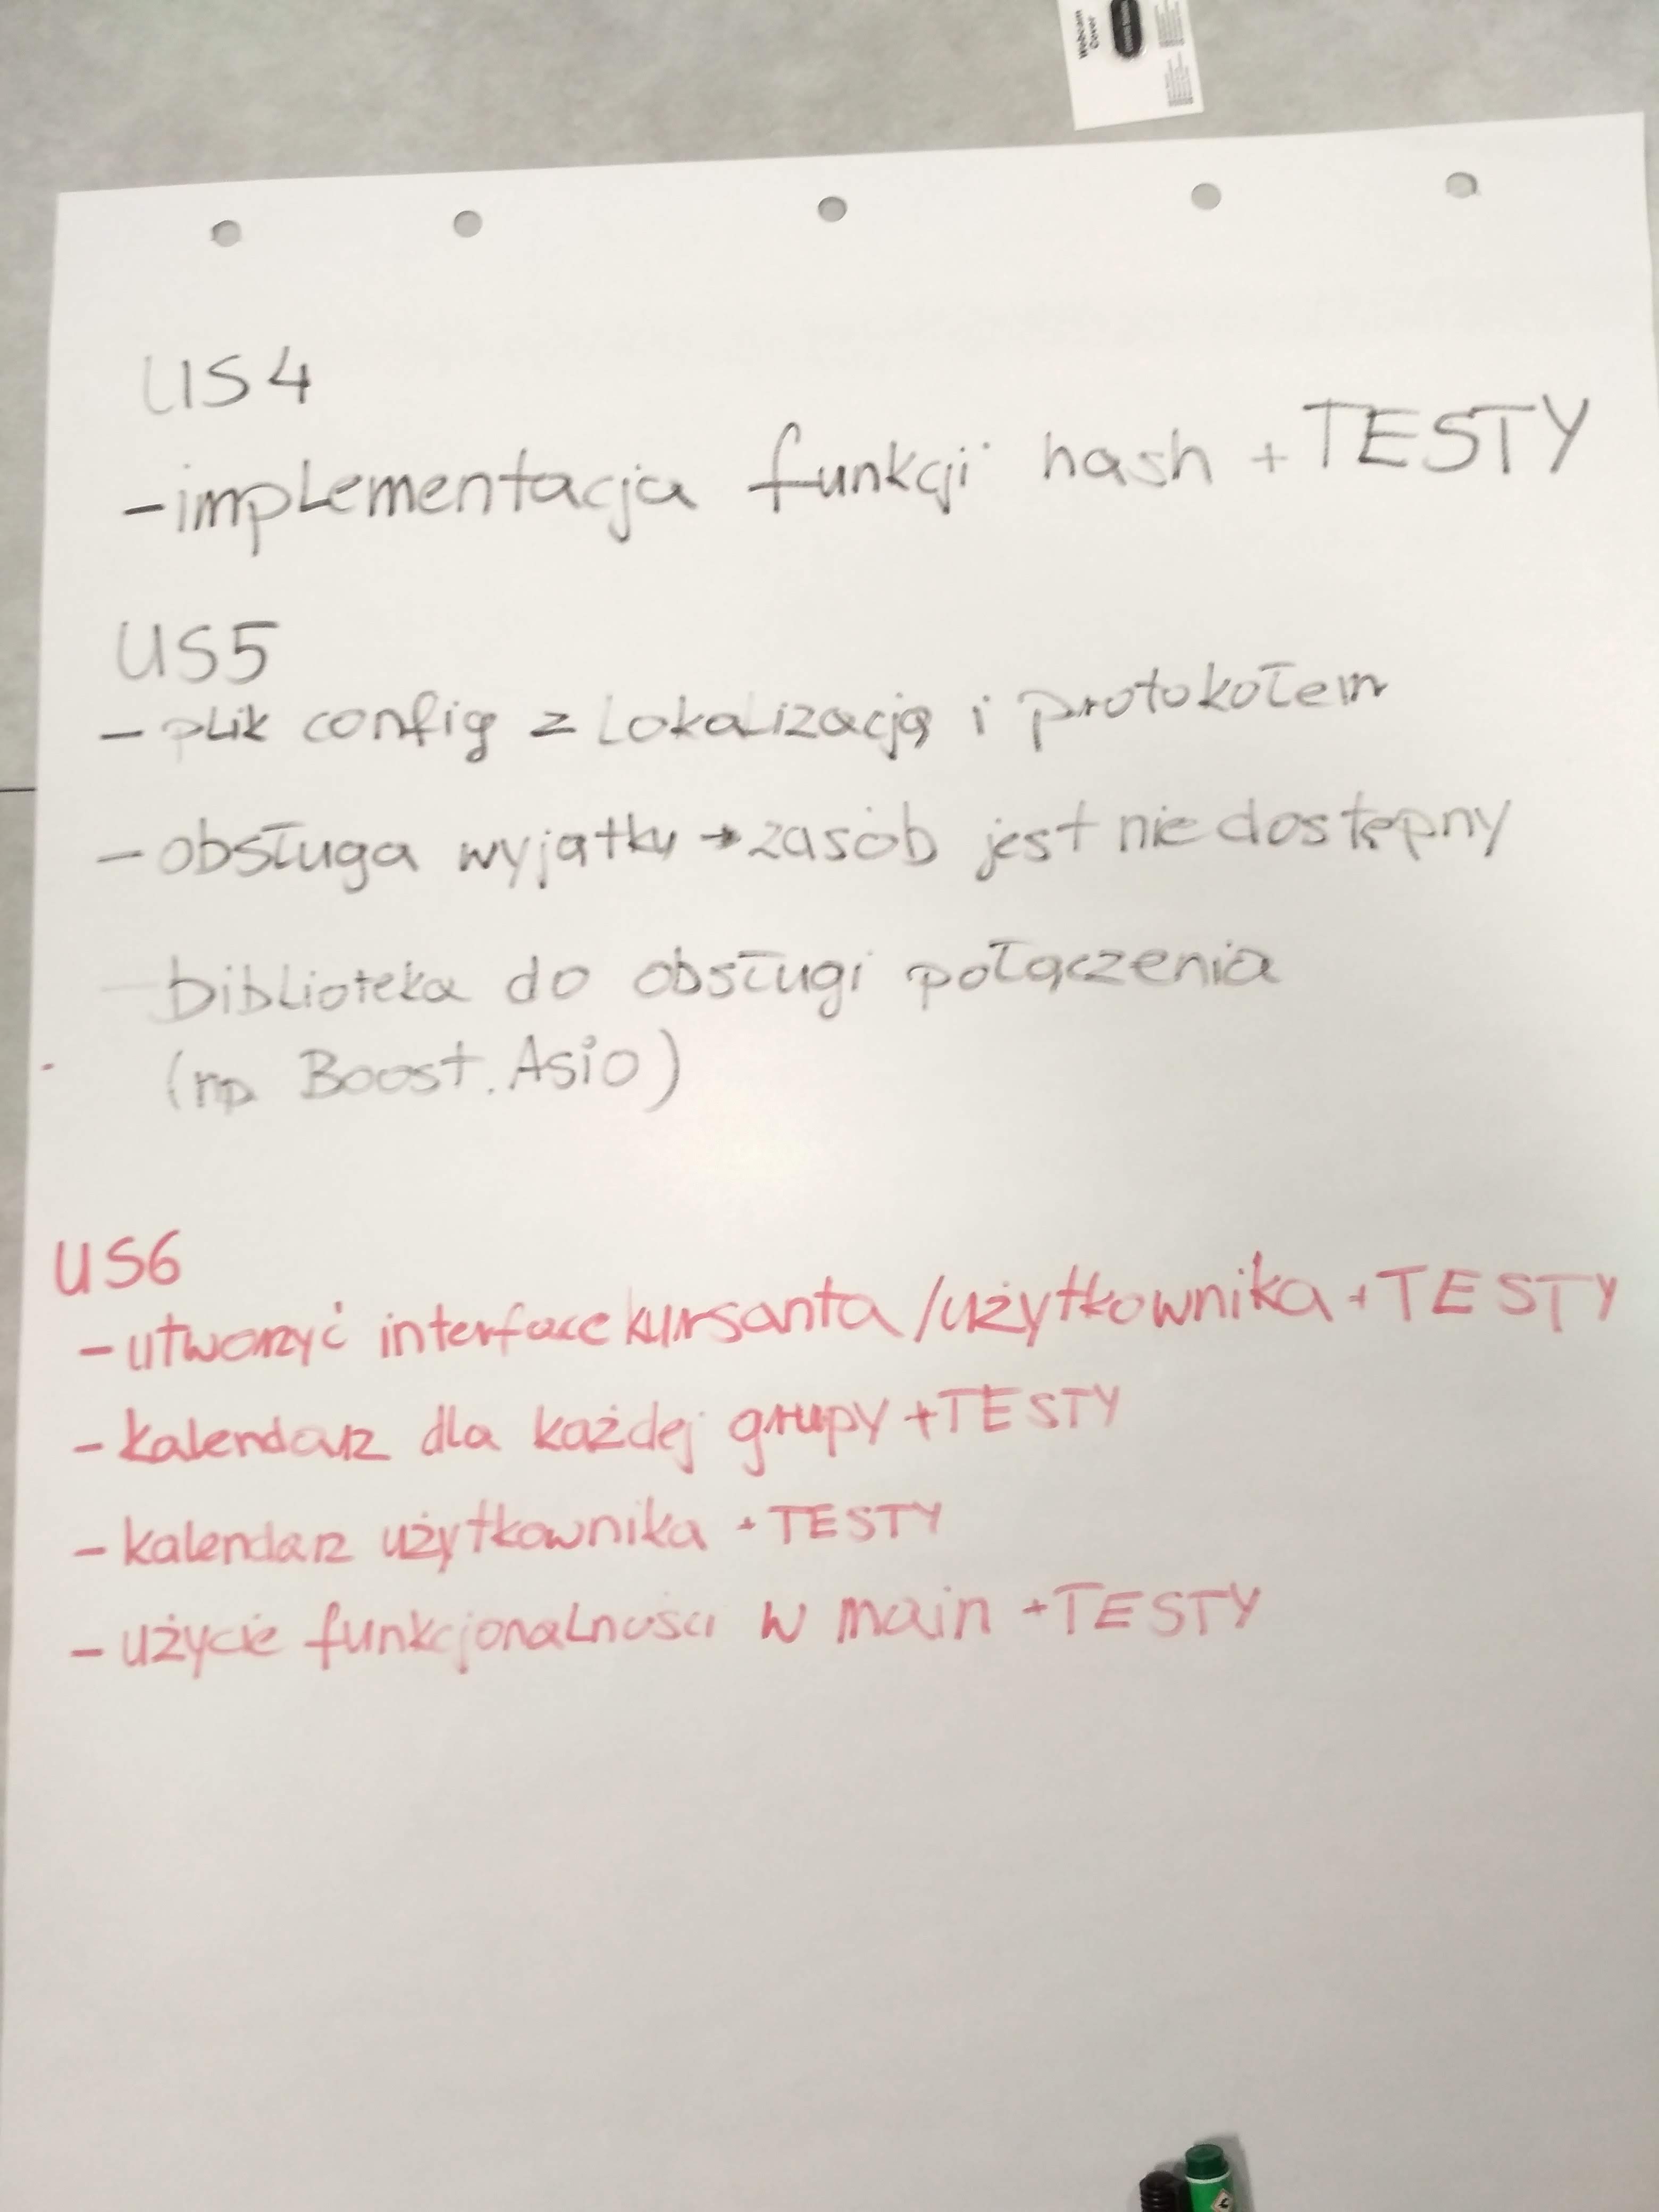 Webcam
Cover
US4
- implementacja funkcji hash + TESTY
US5
- plik config z lokalizacją i protokołem
- obsługa wyjątku → zasób jest niedostępny
- biblioteka do obsługi połączenia
(np. Boost.Asio)
US6
- utworzyć interface kursanta / użytkownika + TESTY
- kalendarz dla każdej grupy + TESTY
- kalendarz użytkownika + TESTY
- użycie funkcjonalności w main + TESTY